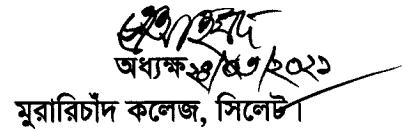 অধ্যক্ষ ২৪/০৩/২০২১
মুরারিচাঁদ কলেজ, সিলেট।